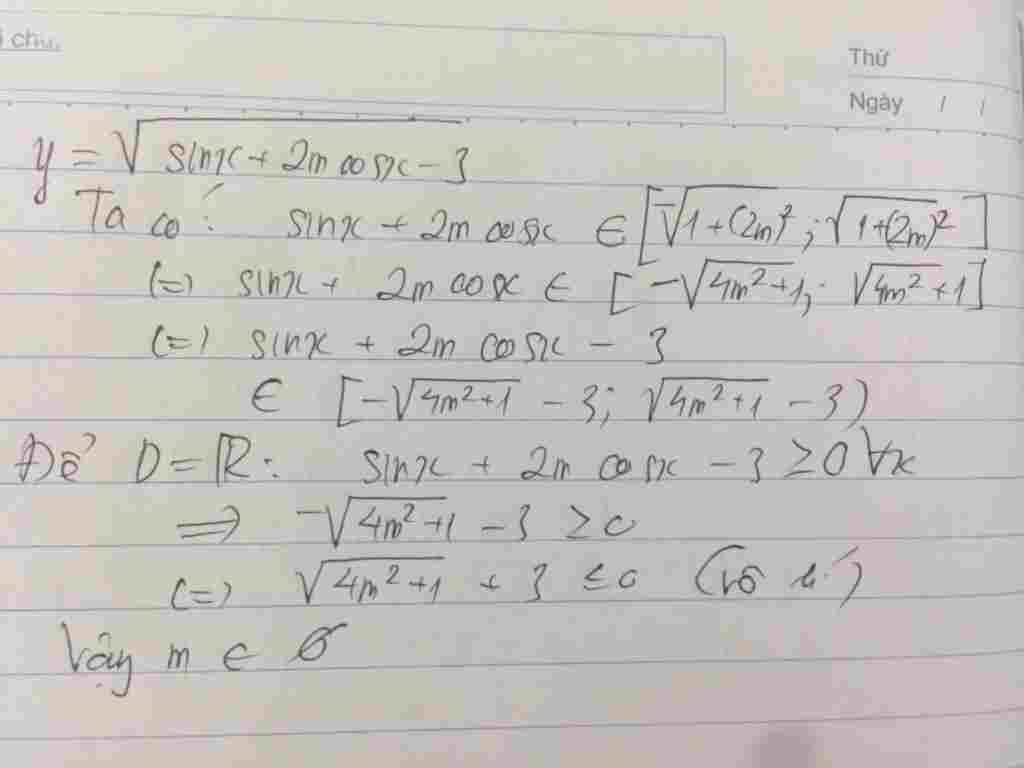 i chú.
Thứ
Ngày / /
y = √(sinx + 2m cosx - 3)
Ta có: sinx + 2m cosx ∈ [-√(1+(2m)²); √(1+(2m)²)]
(=) sinx + 2m cosx ∈ [-√(4m²+1); √(4m²+1)]
(=) sinx + 2m cosx - 3
∈ [-√(4m²+1) - 3; √(4m²+1) - 3)
Để D = ℝ: sinx + 2m cosx - 3 ≥ 0 ∀x
⟹ -√(4m²+1) - 3 ≥ 0
(=) √(4m²+1) + 3 ≤ 0 (Vô lí)
Vậy m ∈ ∅